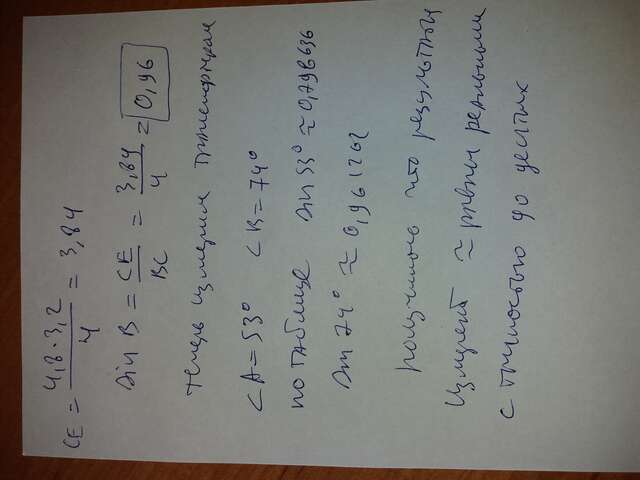 CE = 4,8·3,2 / 4 = 3,84
sin B = CE / BC = 3,84 / 4 = 0,96
теперь измерим транспортиром
∠A = 53° ∠B = 74°
по таблице sin 53° ≈ 0,798636
sin 74° ≈ 0,961262
получилось что результаты
измерений ≈ равны реальным
с точностью до десятых